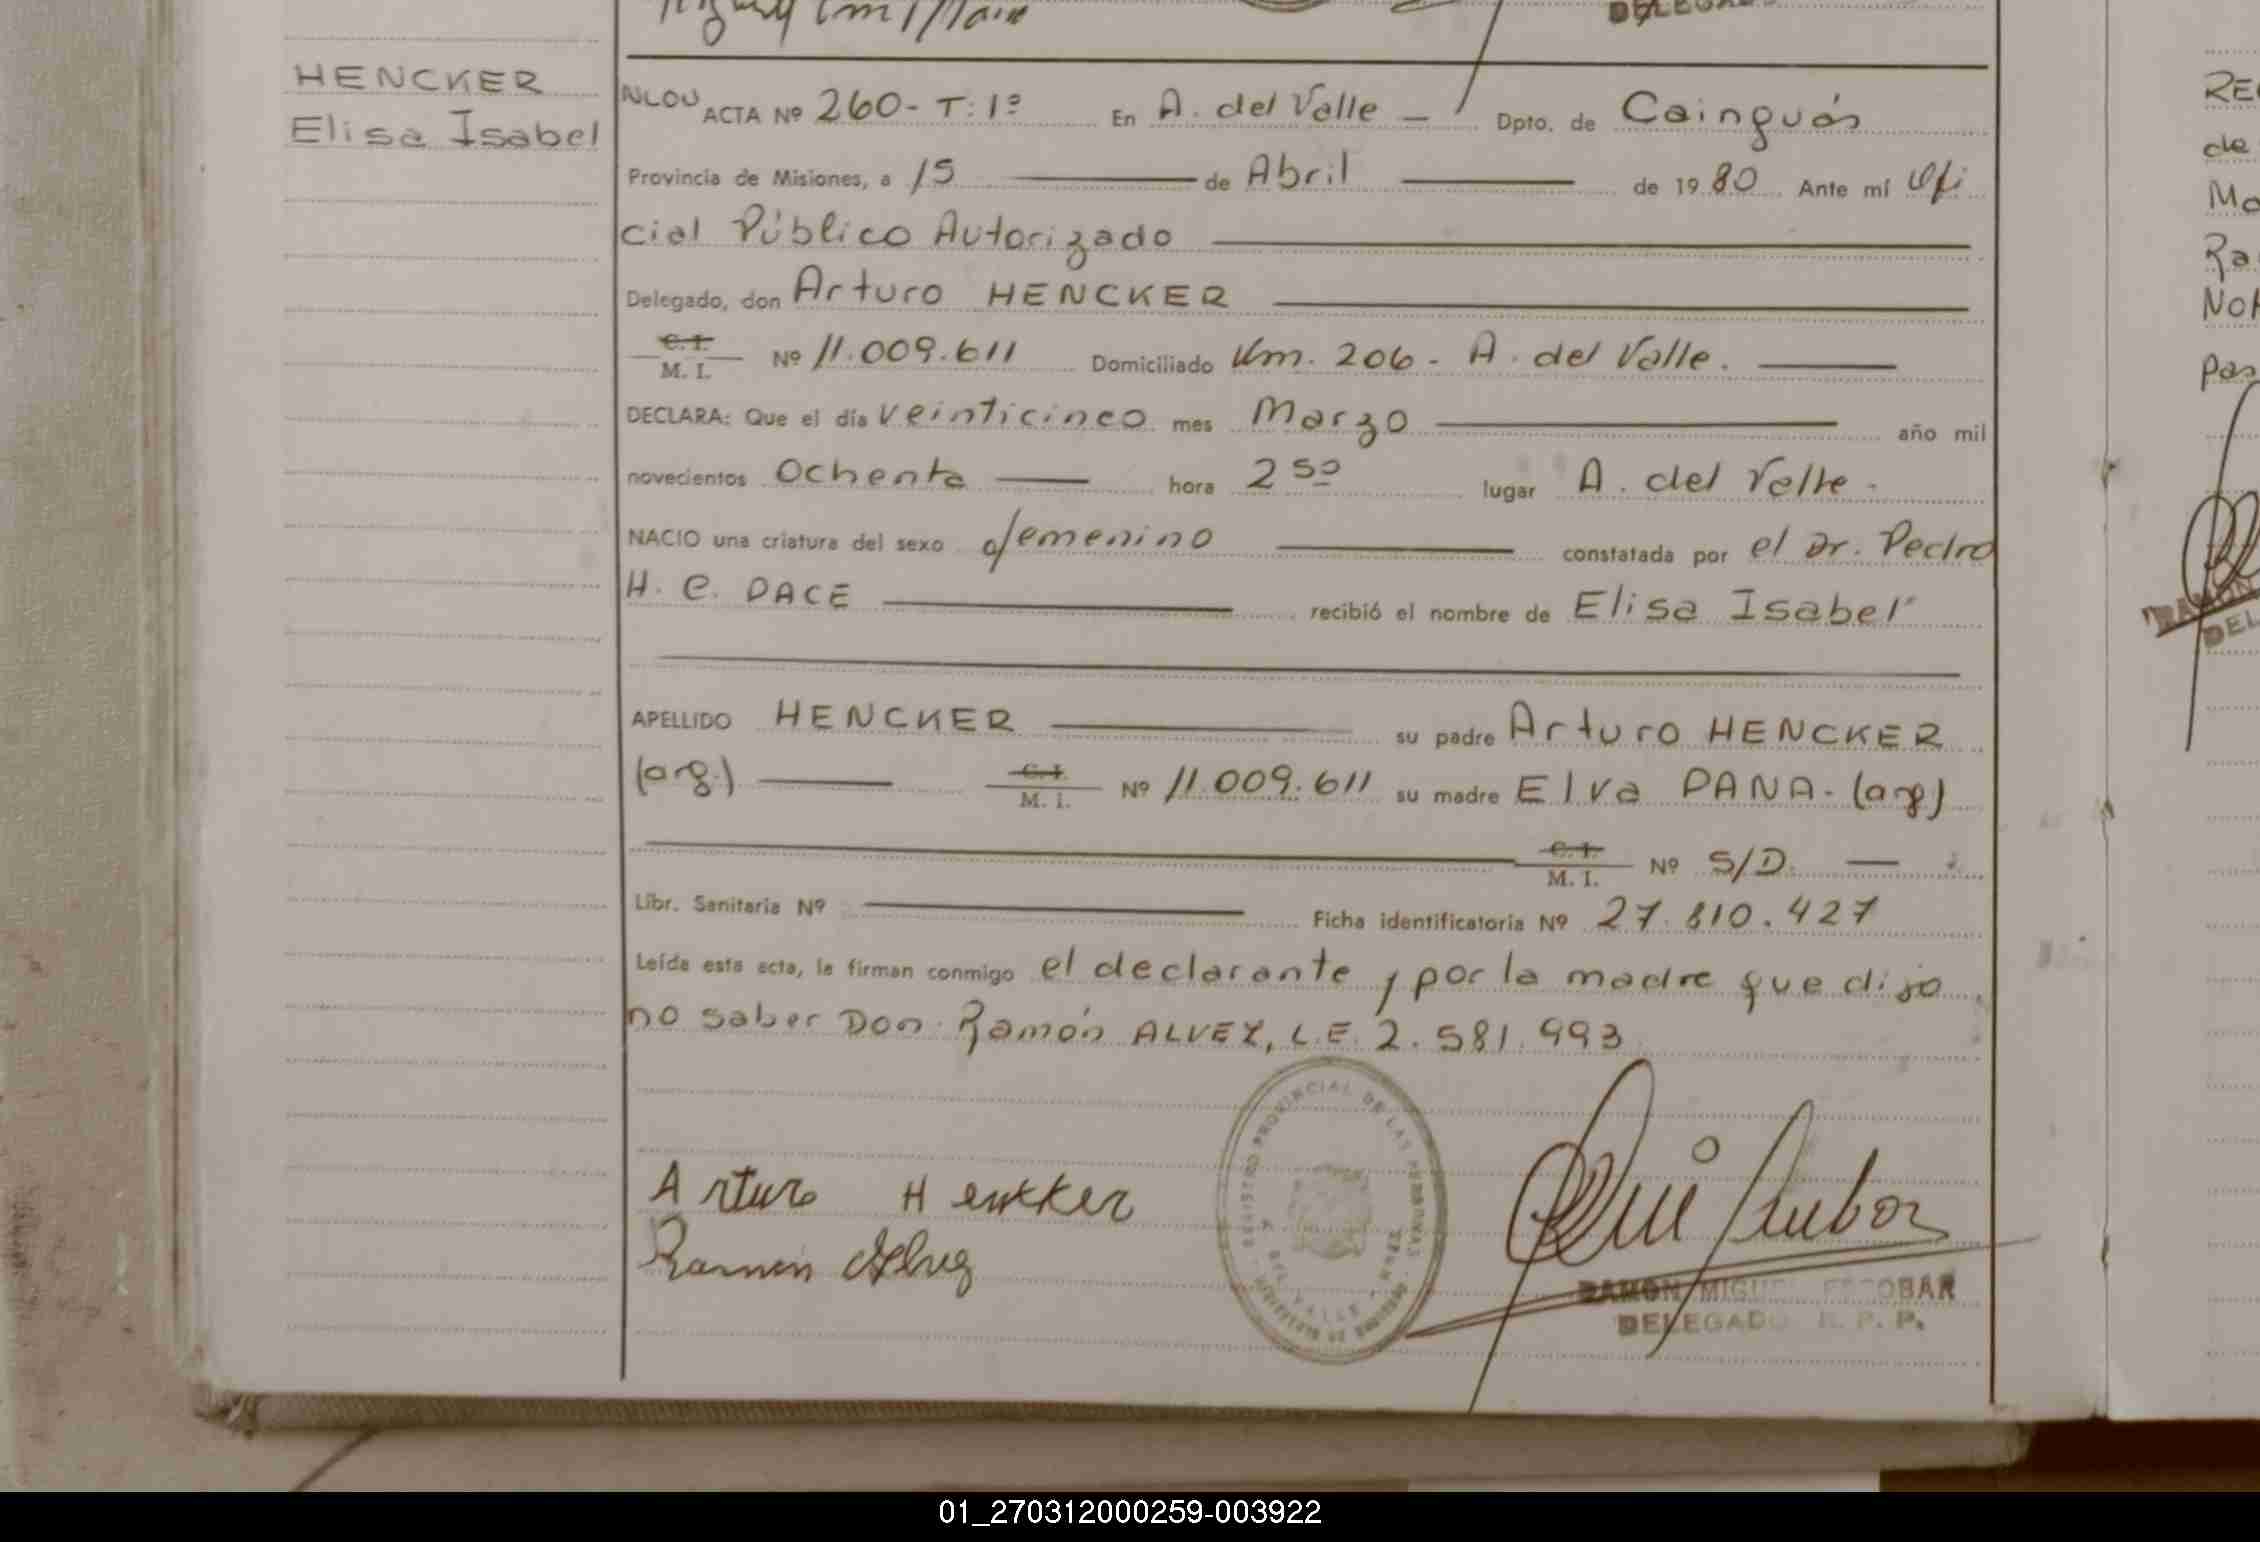 HENCKER
Elisa Isabel
ACTA Nº 260- T: 1º En A. del Valle - Dpto. de Cainguás
Provincia de Misiones, a 15 de Abril de 1980 Ante mí Ofi
cial Público Autorizado
Delegado, don Arturo HENCKER
C. I.
M. I. Nº 11.009.611 Domiciliado Km. 206 - A. del Valle.
DECLARA: Que el día veinticinco mes Marzo año mil
novecientos Ochenta hora 2 50 lugar A. del Valle -
NACIO una criatura del sexo femenino constatada por el Dr. Pedro
H. C. DACE recibió el nombre de Elisa Isabel
APELLIDO HENCKER su padre Arturo HENCKER
(arg.) C. I. M. I. Nº 11.009.611 su madre Elva DANA - (arg)
C. I.
M. I. Nº S/D. -
Libr. Sanitaria Nº Ficha identificatoria Nº 27.810.427
Leída esta acta, la firman conmigo el declarante y por la madre que dijo
no saber Don Ramón ALVEZ, L.E. 2.581.993
REGISTRO PROVINCIAL DE LAS PERSONAS
A. DEL VALLE
Arturo Henkker
Ramon Alvez
RAMON MIGUEL ESCOBAR
DELEGADO R. P. P.
DELEGAD
RE
de
Ma
Ra
NO
pas
DEL
01_270312000259-003922